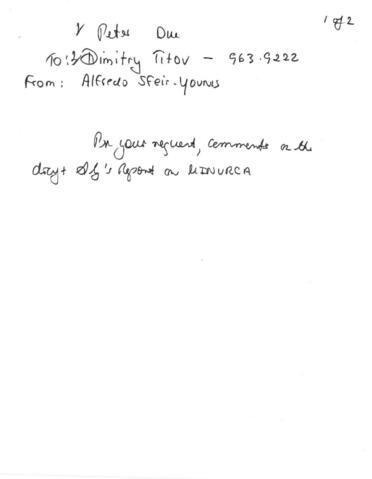 1 of 2
& Peter Due
To: Dimitry Titov - 963.9222
From: Alfredo Sfeir-Younis
Per your request, comments on the
draft SG's Report on MINURCA